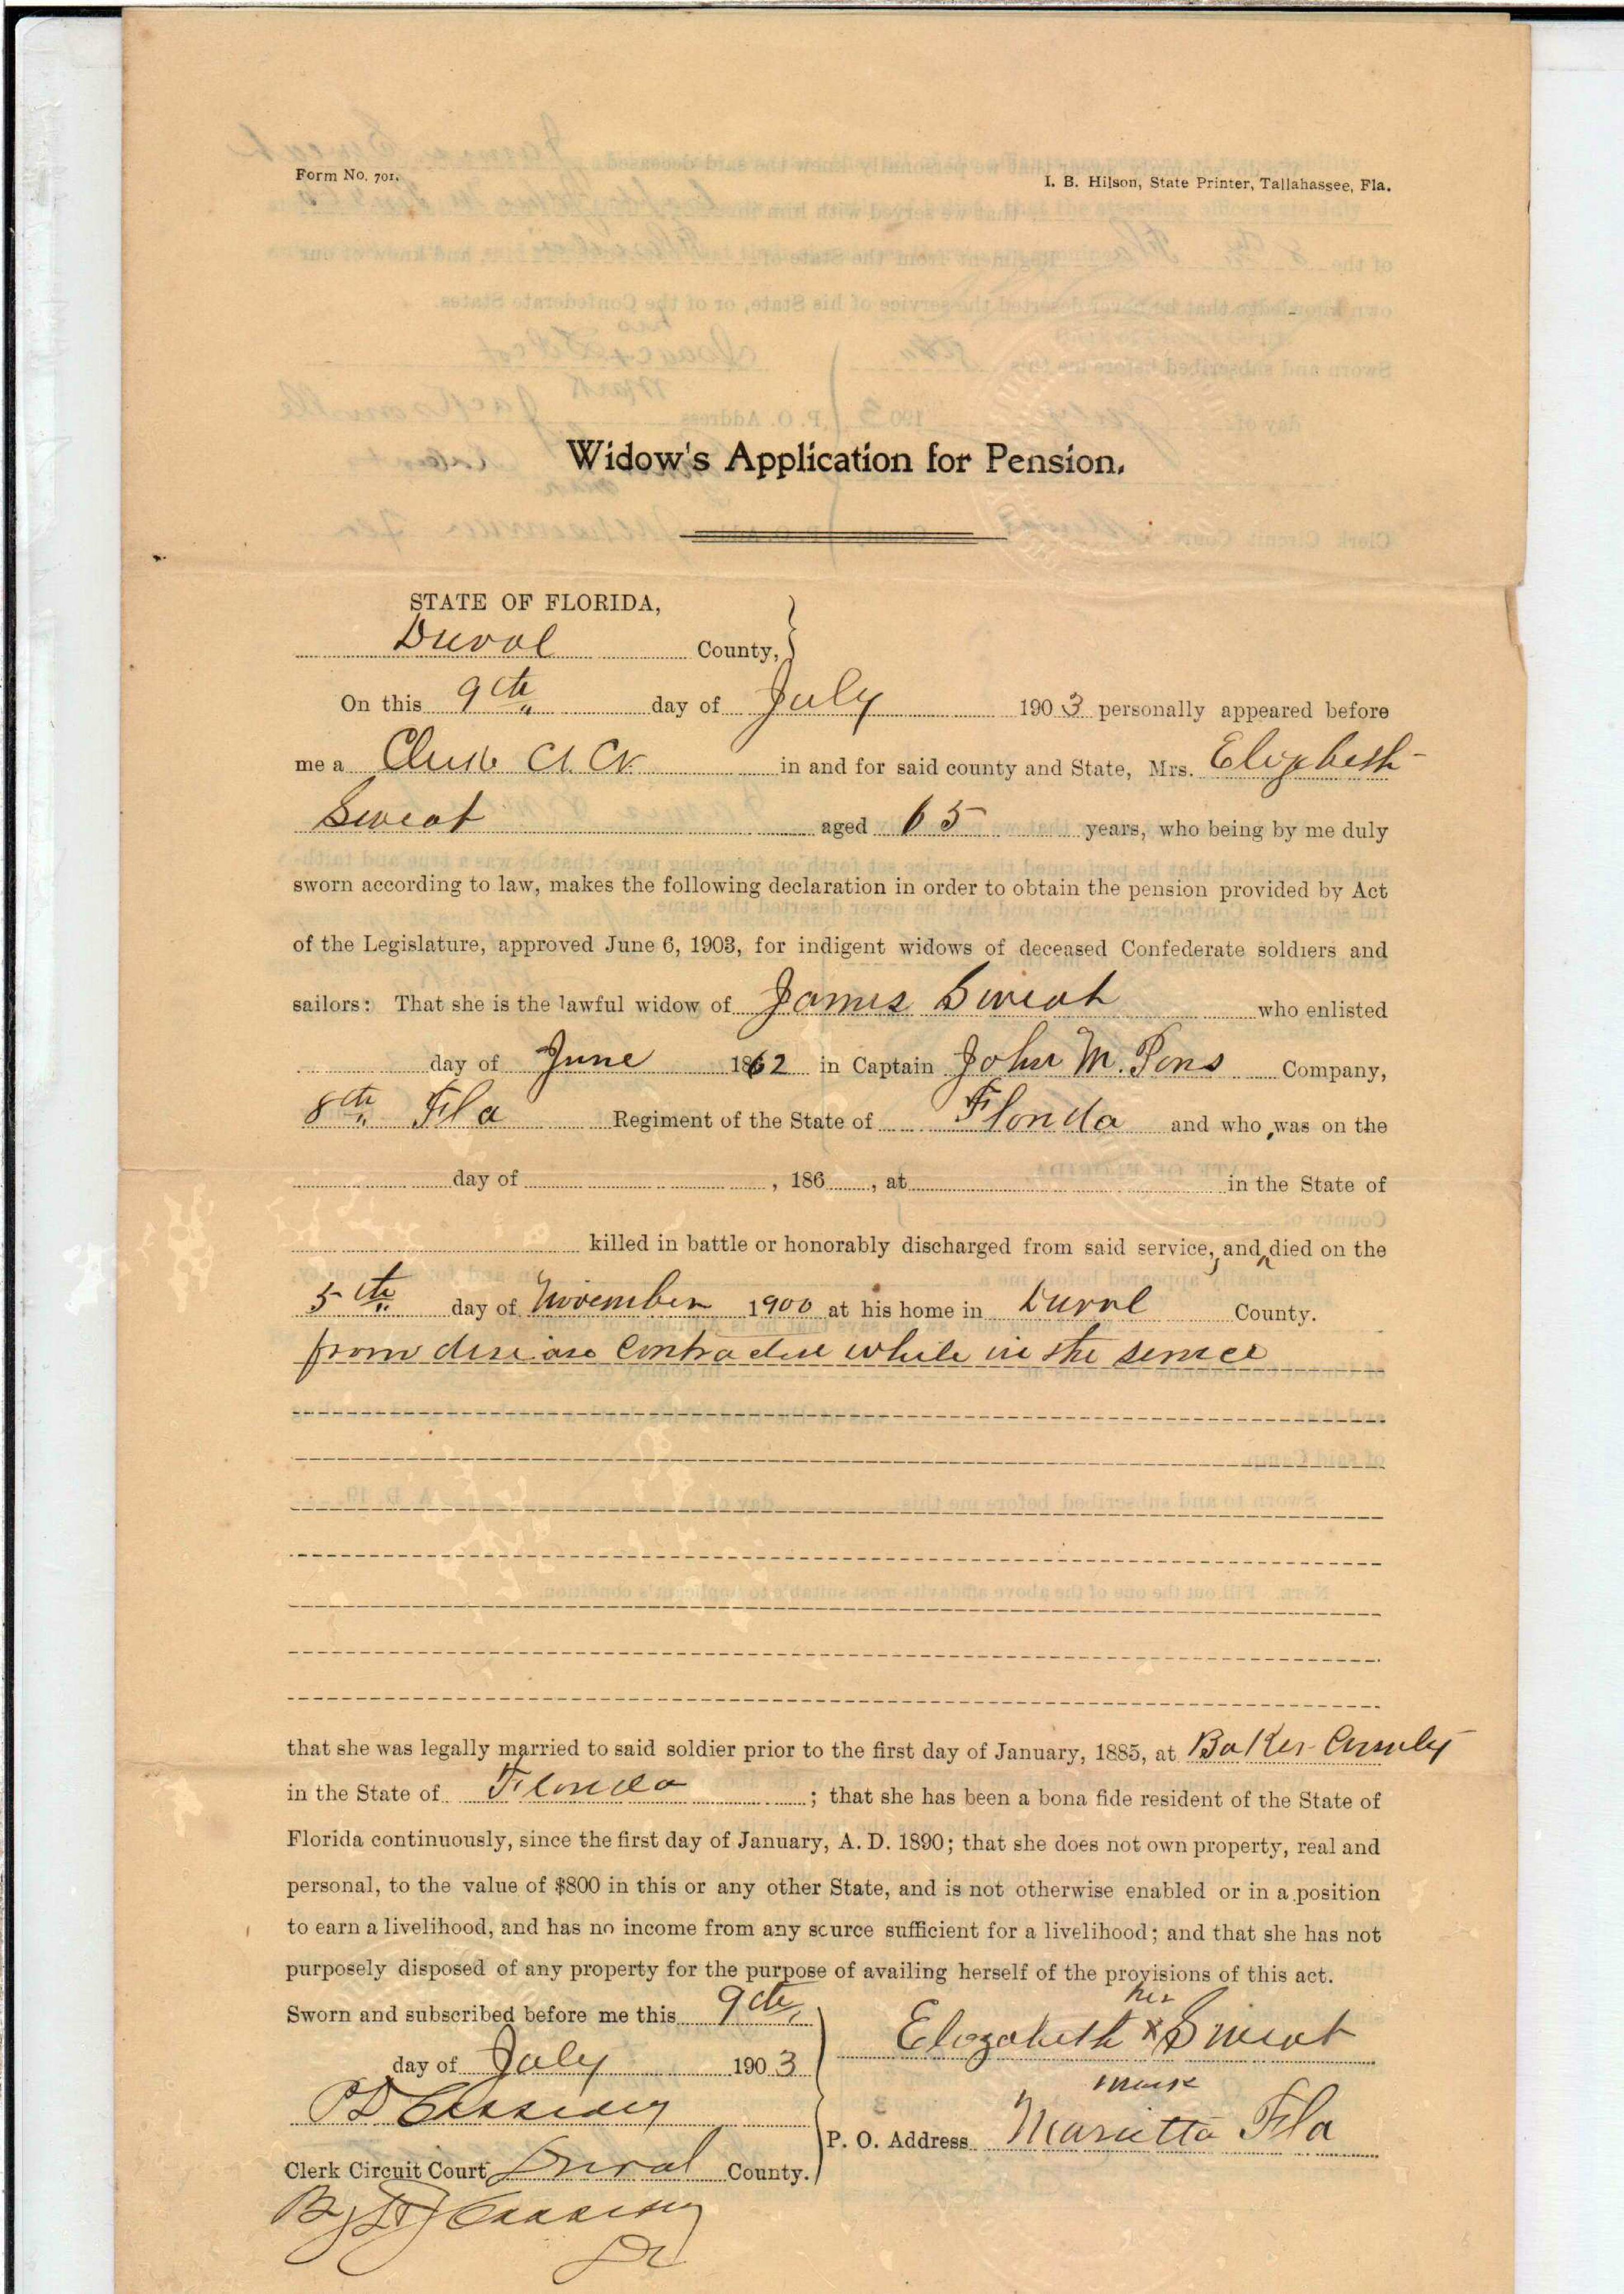 Form No. 701.
I. B. Hilson, State Printer, Tallahassee, Fla.
Widow's Application for Pension.
STATE OF FLORIDA,
Duval County,
On this 9th day of July 1903 personally appeared before
me a Clerk C. Ct. in and for said county and State, Mrs. Elizabeth
Sweat aged 65 years, who being by me duly
sworn according to law, makes the following declaration in order to obtain the pension provided by Act
of the Legislature, approved June 6, 1903, for indigent widows of deceased Confederate soldiers and
sailors: That she is the lawful widow of James Sweat who enlisted
day of June 1862 in Captain John M. Pons Company,
8th Fla Regiment of the State of Florida and who was on the
day of , 186 , at in the State of
killed in battle or honorably discharged from said service, and died on the
5th day of November 1900 at his home in Duval County.
from disease Contracted while in the service
that she was legally married to said soldier prior to the first day of January, 1885, at Baker County
in the State of Florida ; that she has been a bona fide resident of the State of
Florida continuously, since the first day of January, A. D. 1890; that she does not own property, real and
personal, to the value of $800 in this or any other State, and is not otherwise enabled or in a position
to earn a livelihood, and has no income from any source sufficient for a livelihood; and that she has not
purposely disposed of any property for the purpose of availing herself of the provisions of this act.
Sworn and subscribed before me this 9th
day of July 1903
P D Cassidey
Clerk Circuit Court Duval County.
By Cassidey
DC
her
Elizabeth X Sweat
mark
P. O. Address Marietta Fla